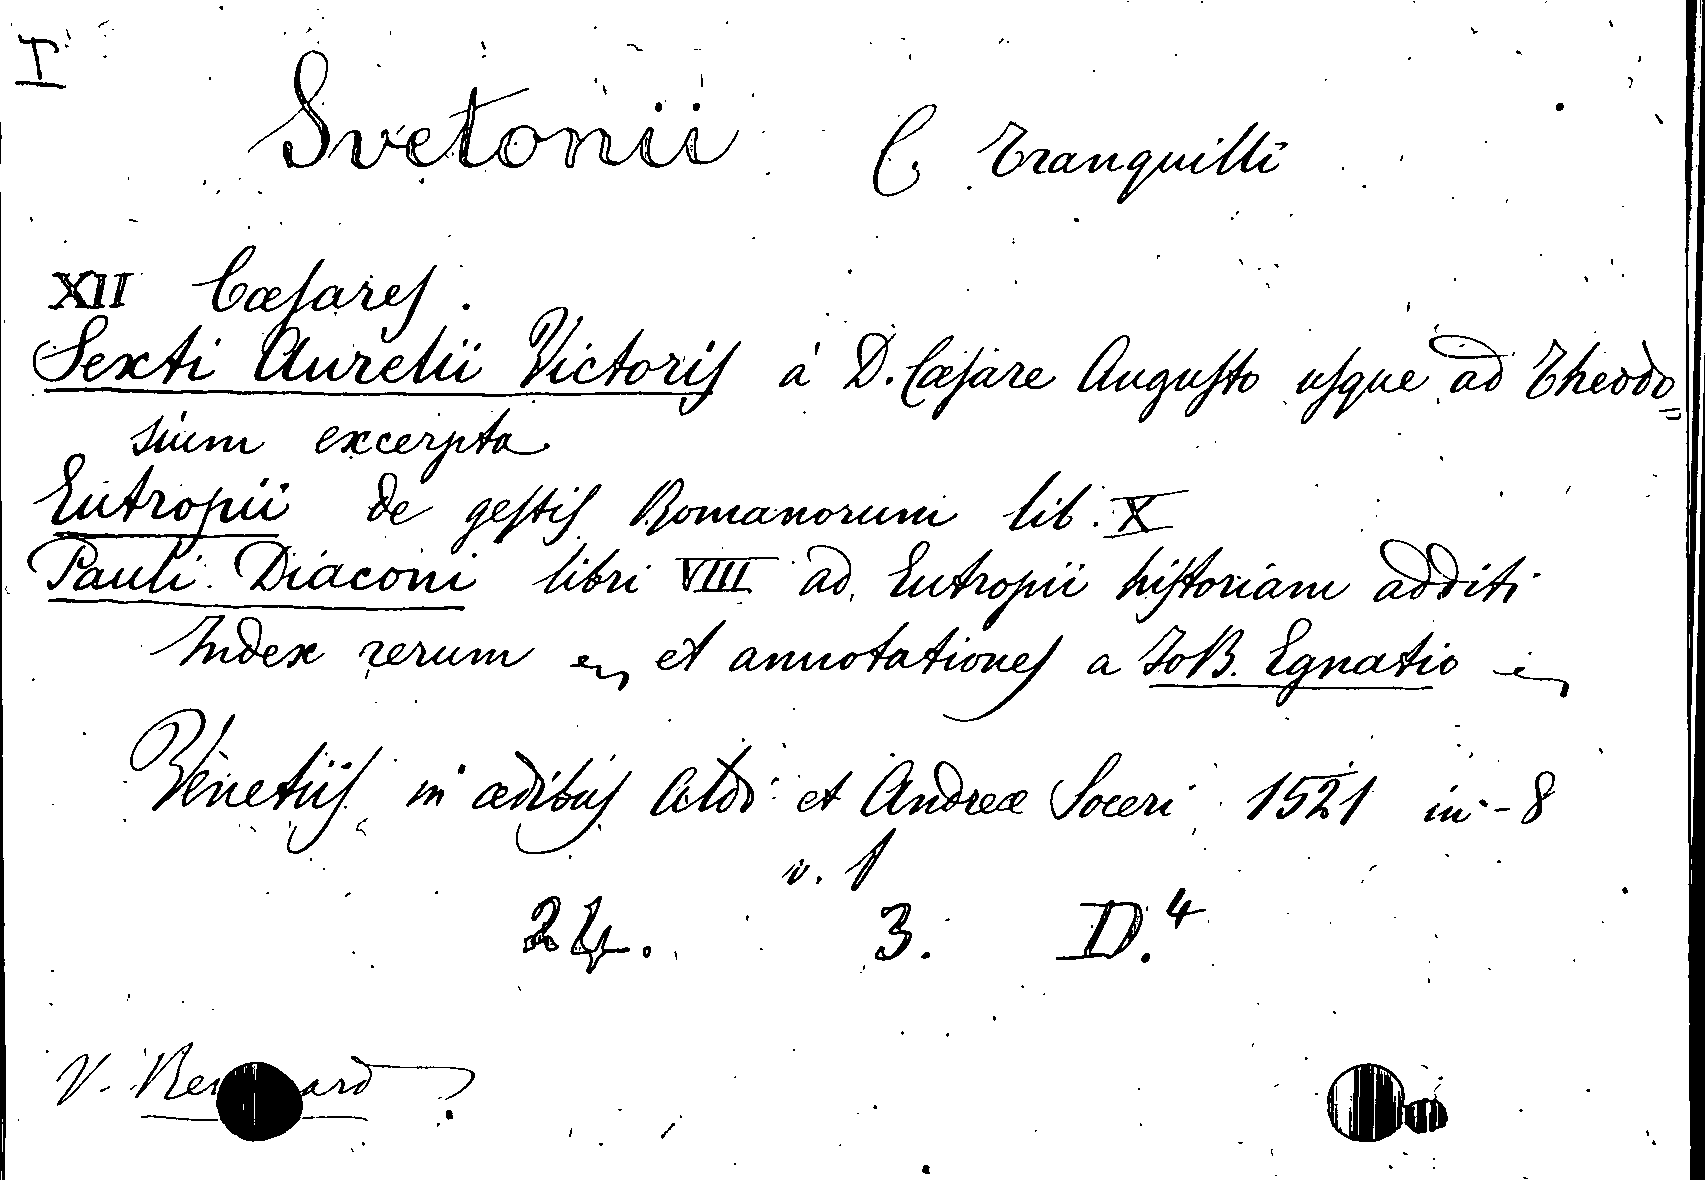 I
Svetonii C. Tranquilli
XII Cæsares.
Sexti Aurelii Victoris à D. Cæsare Augusto usque ad Theodo=
sium excerpta
Eutropii de gestis Romanorum lib. X
Pauli Diaconi libri VIII ad Eutropii historiam additi
Index rerum et annotationes a Jo B. Egnatio
Venetiis in ædibus Aldi et Andreæ Soceri 1521 in-8
v. 1
24. 3. D.4
V.